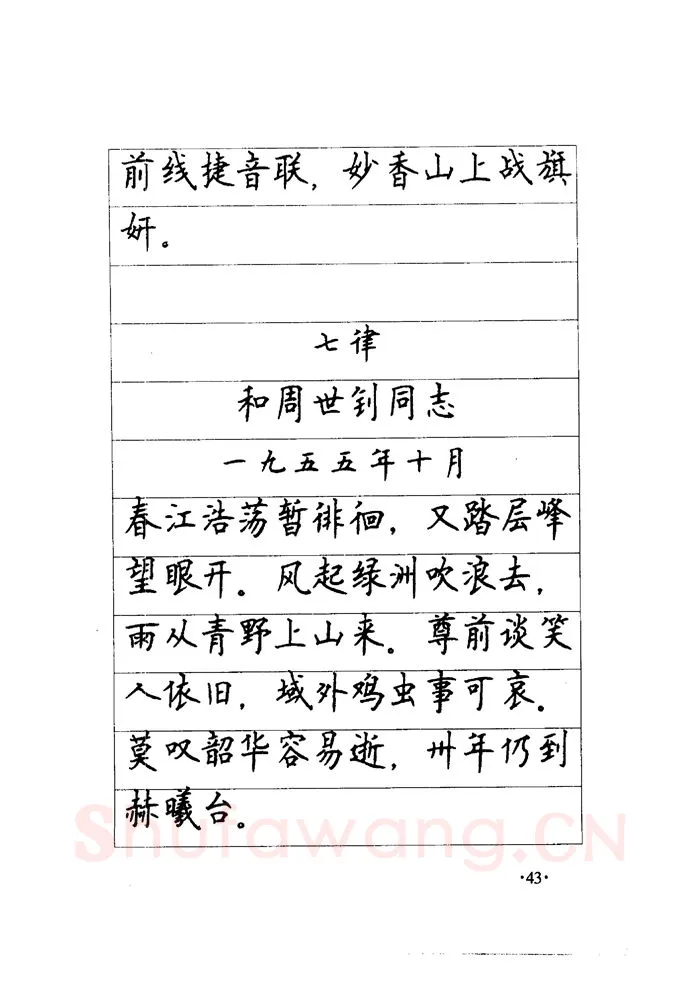 前线捷音联，妙香山上战旗
妍。
七律
和周世钊同志
一九五五年十月
春江浩荡暂徘徊，又踏层峰
望眼开。风起绿洲吹浪去，
雨从青野上山来。尊前谈笑
人依旧，域外鸡虫事可哀。
莫叹韶华容易逝，卅年仍到
赫曦台。
Shufawang.CN
·43·